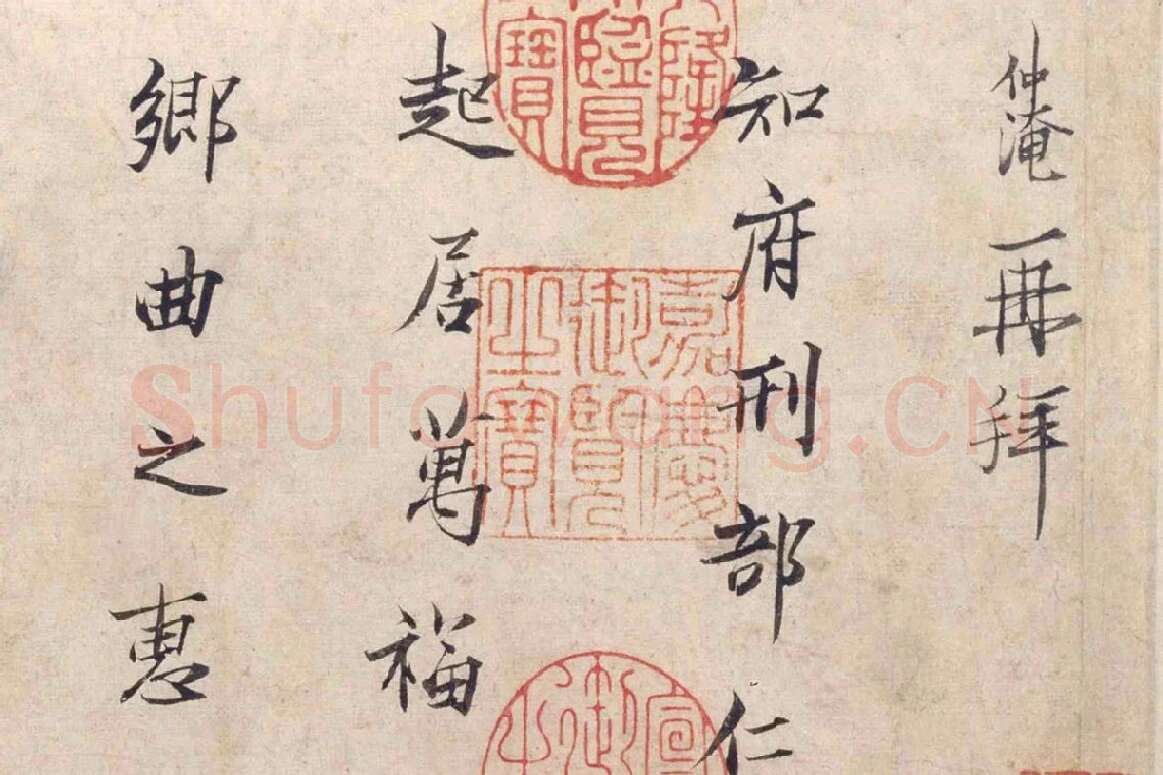 仲淹再拜
知府刑部仁
起居萬福
鄉曲之惠
乾隆御覽之寶
嘉慶御覽之寶
宣 御 之
Shufawang.CN